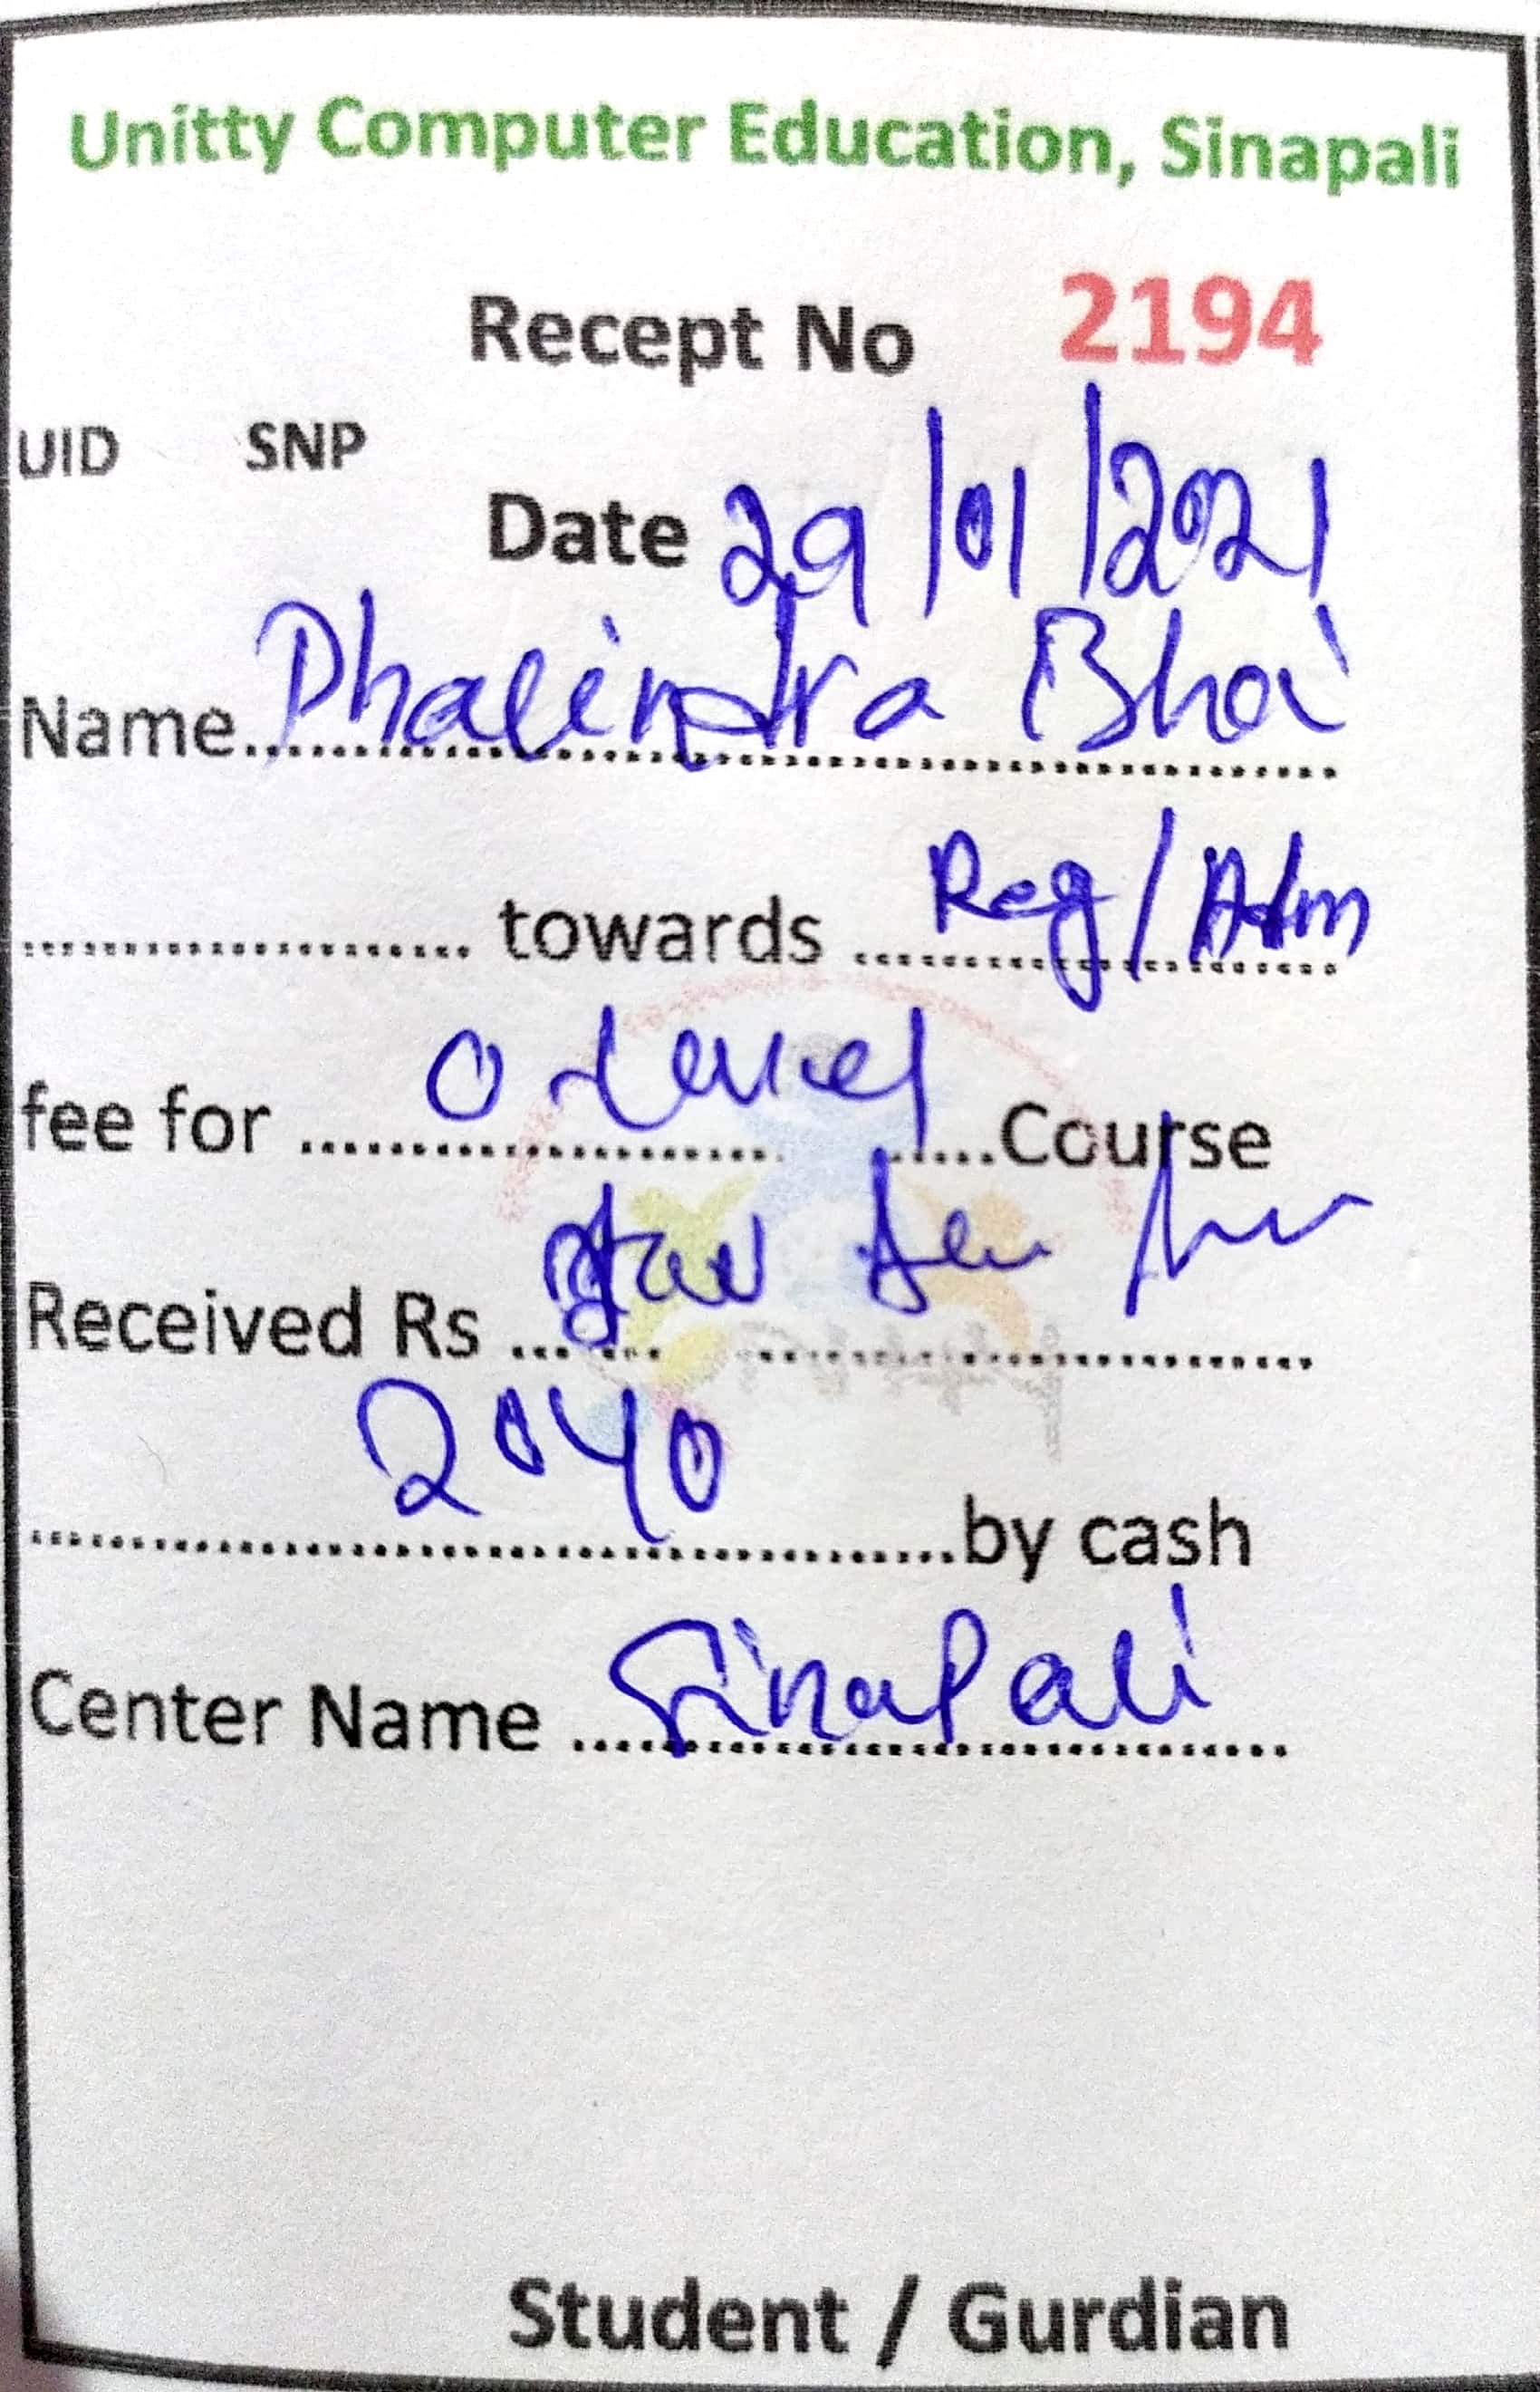 Unitty Computer Education, Sinapali
Recept No 2194
UID SNP
Date 29/01/2021
Name Dhalindra Bhoi
towards Reg/Adm
fee for O Level Course
Received Rs
2040 by cash
Center Name Sinapali
Student / Gurdian